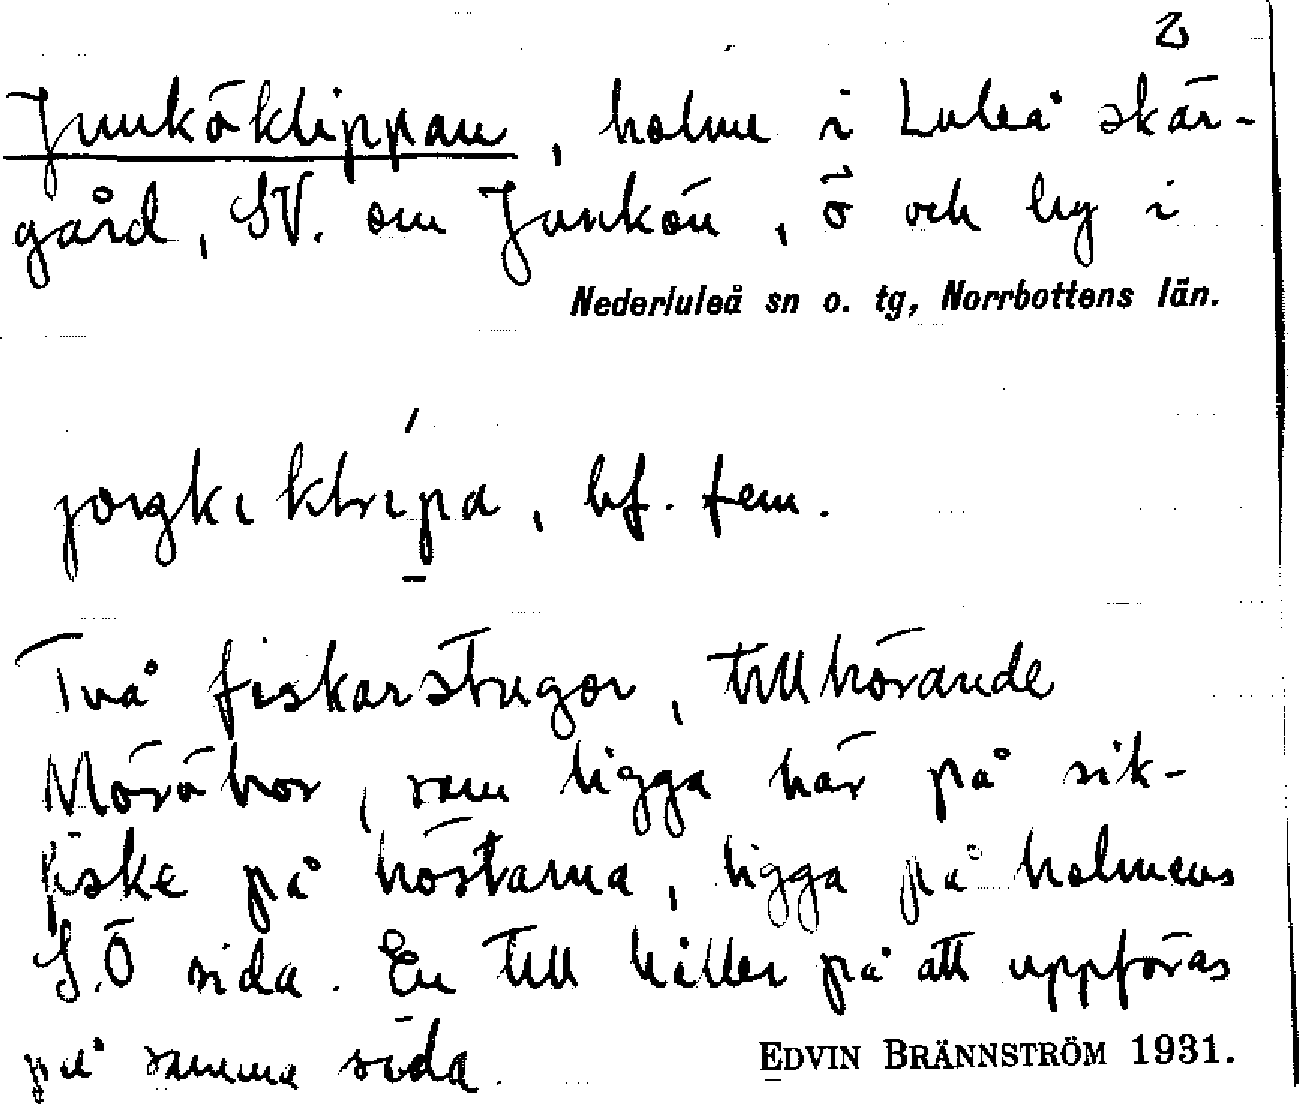 2
Junköklippan, holme i Luleå skär-
gård, SV. om Junkön, ö och by i
Nederluleå sn o. tg, Norrbottens län.
bf. fem.
Två fiskarstugor, tillhörande
Möröbor, som ligga här på sik-
fiske på höstarna, ligga på holmens
S.Ö sida. En till håller på att uppföras
på samma sida.
EDVIN BRÄNNSTRÖM 1931.